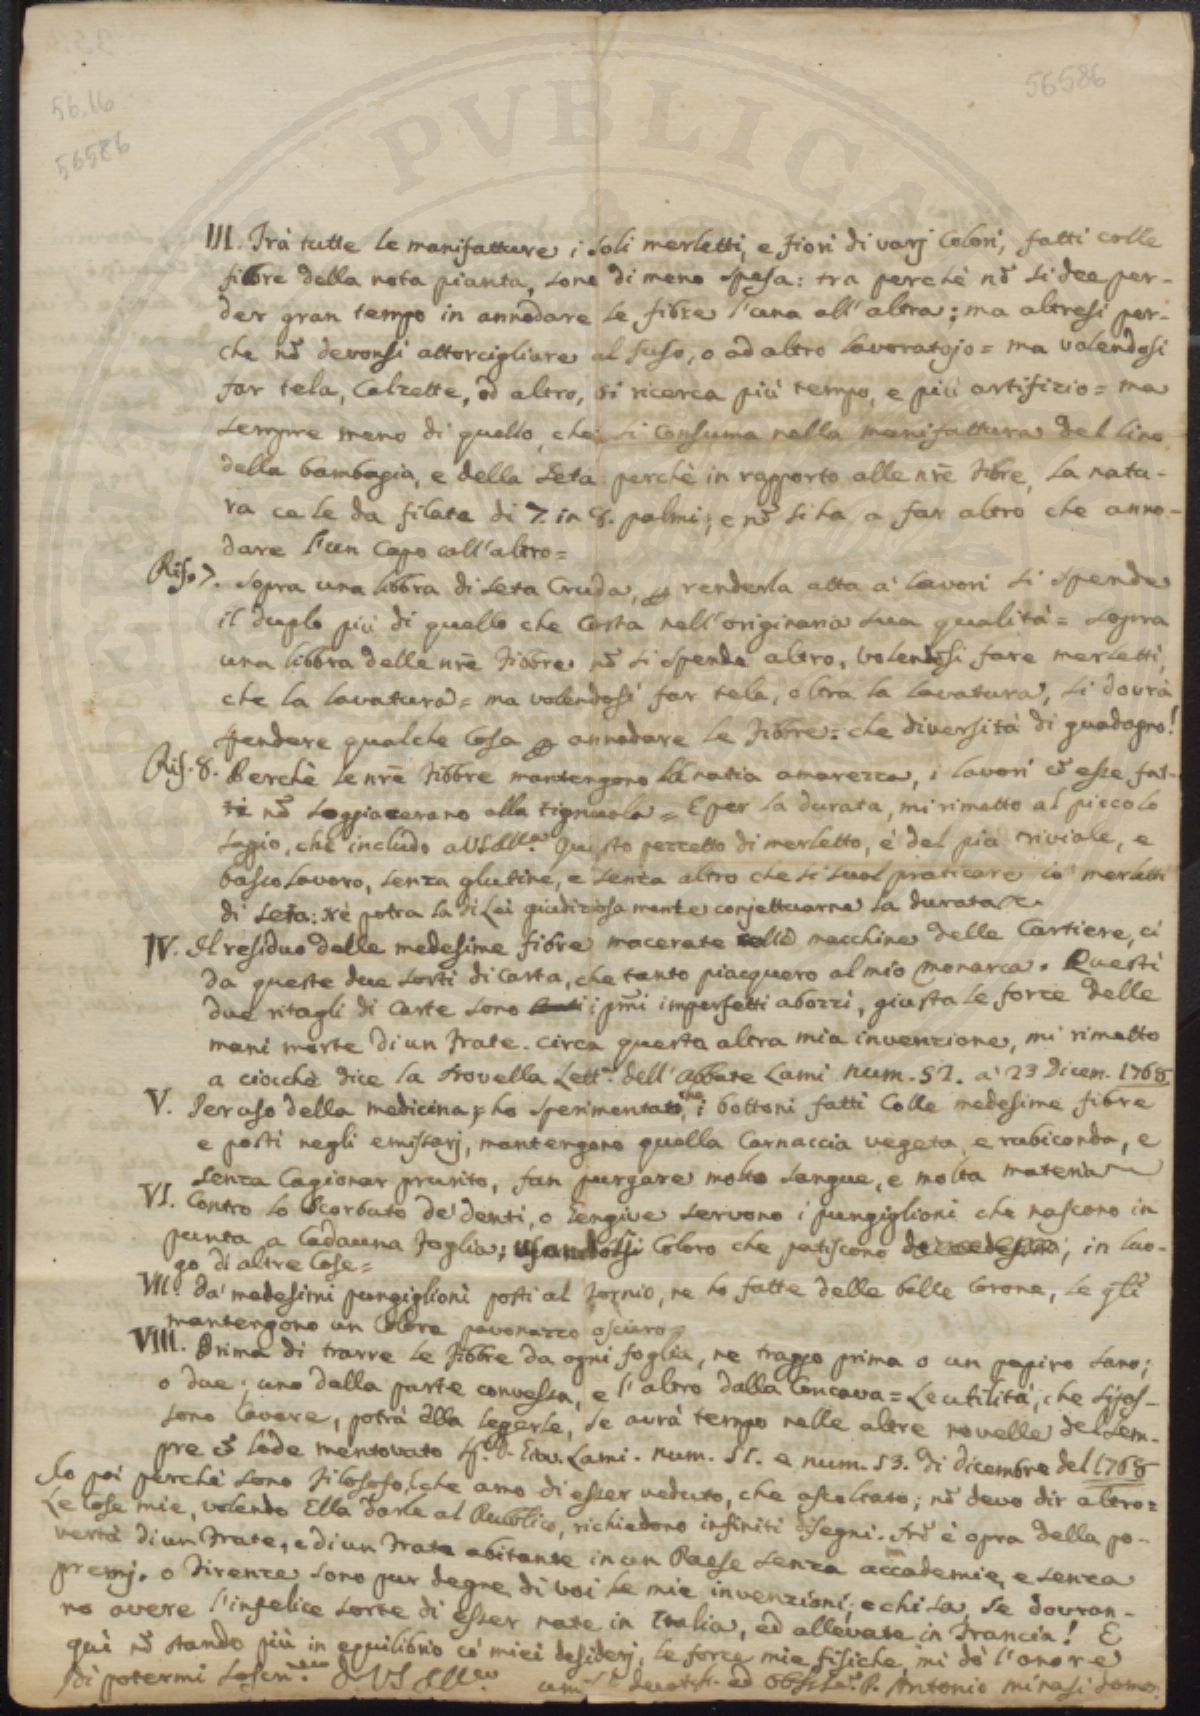 56586
56.16
56586
III. Trà tutte le manifatture i soli merletti, e fiori di varj Colori, fatti colle
fibre della nota pianta, sono di meno spesa: tra perchè nō si dee per-
der gran tempo in annodare le fibre l'una all'altra; ma altresi per-
che nō devonsi attorcigliare al fuso, o ad altro lavoratojo = ma volendosi
far tela, Calzette, od altro, si ricerca più tempo, e più artifizio = ma
sempre meno di quello, che si consuma nella manifattura del lino
della bambagia, e della seta: perchè in rapporto alle nrē fibre, la natu-
ra ce le da filate di 7. in 8. palmi; e nō si ha a far altro che anno-
dare l'un Capo coll'altro =
Ris. 7. Sopra una libbra di seta Cruda, renderla atta a' lavori si spende
il duplo più di quello che Costa nell'originaria sua qualità = sopra
una libbra delle nrē Fibbre nō si spende altro, volendosi fare merletti,
che la lavatura = ma volendosi far tela, oltra la lavatura, si dovrà
spendere qualche Cosa annodare le Fibbre: che diversità di guadagno!
Ris. 8. Perchè le nrē Fibbre mantengono la natia amarezza, i lavori cō esse fat-
ti nō soggiaceranno alla tignuola = E per la durata, mi rimetto al piccolo
sagio, che includo a VS Illma. Questo pezzetto di merletto, è del più triviale, e
basso lavoro, senza glutine, e senza altro che si suol praticare co' merletti
di seta: potra la di Lei giudiziosa mente conjetturarne la durata
IV. Il residuo delle medesime fibre macerate colle macchine delle Cartiere, ci
da queste due sorti di Carta, che tanto piacquero al mio Monarca. Questi
due ritagli di Carte sono i pmi imperfetti abozzi, giusta le forze delle
mani morte di un Frate. circa questa altra mia invenzione, mi rimetto
a ciocchè dice la Novella Lett. dell'Abbate Lami num. 52. a' 23 Dicem. 1768
V. Per uso della medicina, ho sperimentato, che i bottoni fatti Colle medesime fibre
e posti negli emissarj, mantengono quella Carnaccia vegeta, e rubiconda, e
senza Cagionar prurito, fan purgare molto sangue, e molta materia
VI. Contro lo Scorbuto de' denti, o gengive servono i pungiglioni che nascono in
punta a Cadauna Foglia; usandolsi Coloro che patiscono, in luo-
go di altre Cose =
VII. Da' medesimi pungiglioni posti al Tornio, ne ho fatte delle belle Corone, le qli
mantengono un Colore pavonazzo oscuro =
VIII. Prima di trarre le Fibbre da ogni foglia, ne traggo prima o un papiro sano;
o due; uno dalla parte convessa, e l'altro dalla Concava = Le utilità, che si pos-
sono Cavare, potrà Ella legerle, se avrà tempo nelle altre novelle del sem-
pre cō lode mentovato Lami. num. 51. e num. 53. di dicembre del 1768
Io poi perchè sono Filosofo, che amo di esser veduto, che ascoltato; nō devo dir altro =
Le Cose mie, volendo Ella darle al Pubblico, richiedono infiniti disegni. Nō è opra della po-
vertà di un Frate, e di un Frate abitante in un Paese senza accademie e senza
premj. o Firenze sono pur degne di voi le mie invenzioni; e chi sa, se dovran-
no avere l'infelice sorte di esser nate in Italia, ed allevate in Francia! E
qui nō stando più in equilibrio co' miei desiderj, le forze mie fisiche, mi dò l'onore
di potermi di VS Illma P. Antonio Minasi